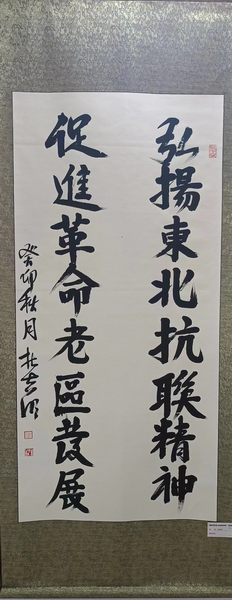 弘揚東北抗聯精神
促進革命老區發展
癸卯秋月